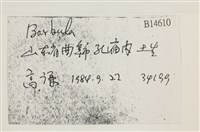 B14610
Barbula
山东省曲阜孔庙内 土生
高谦 1984.9.22 34199